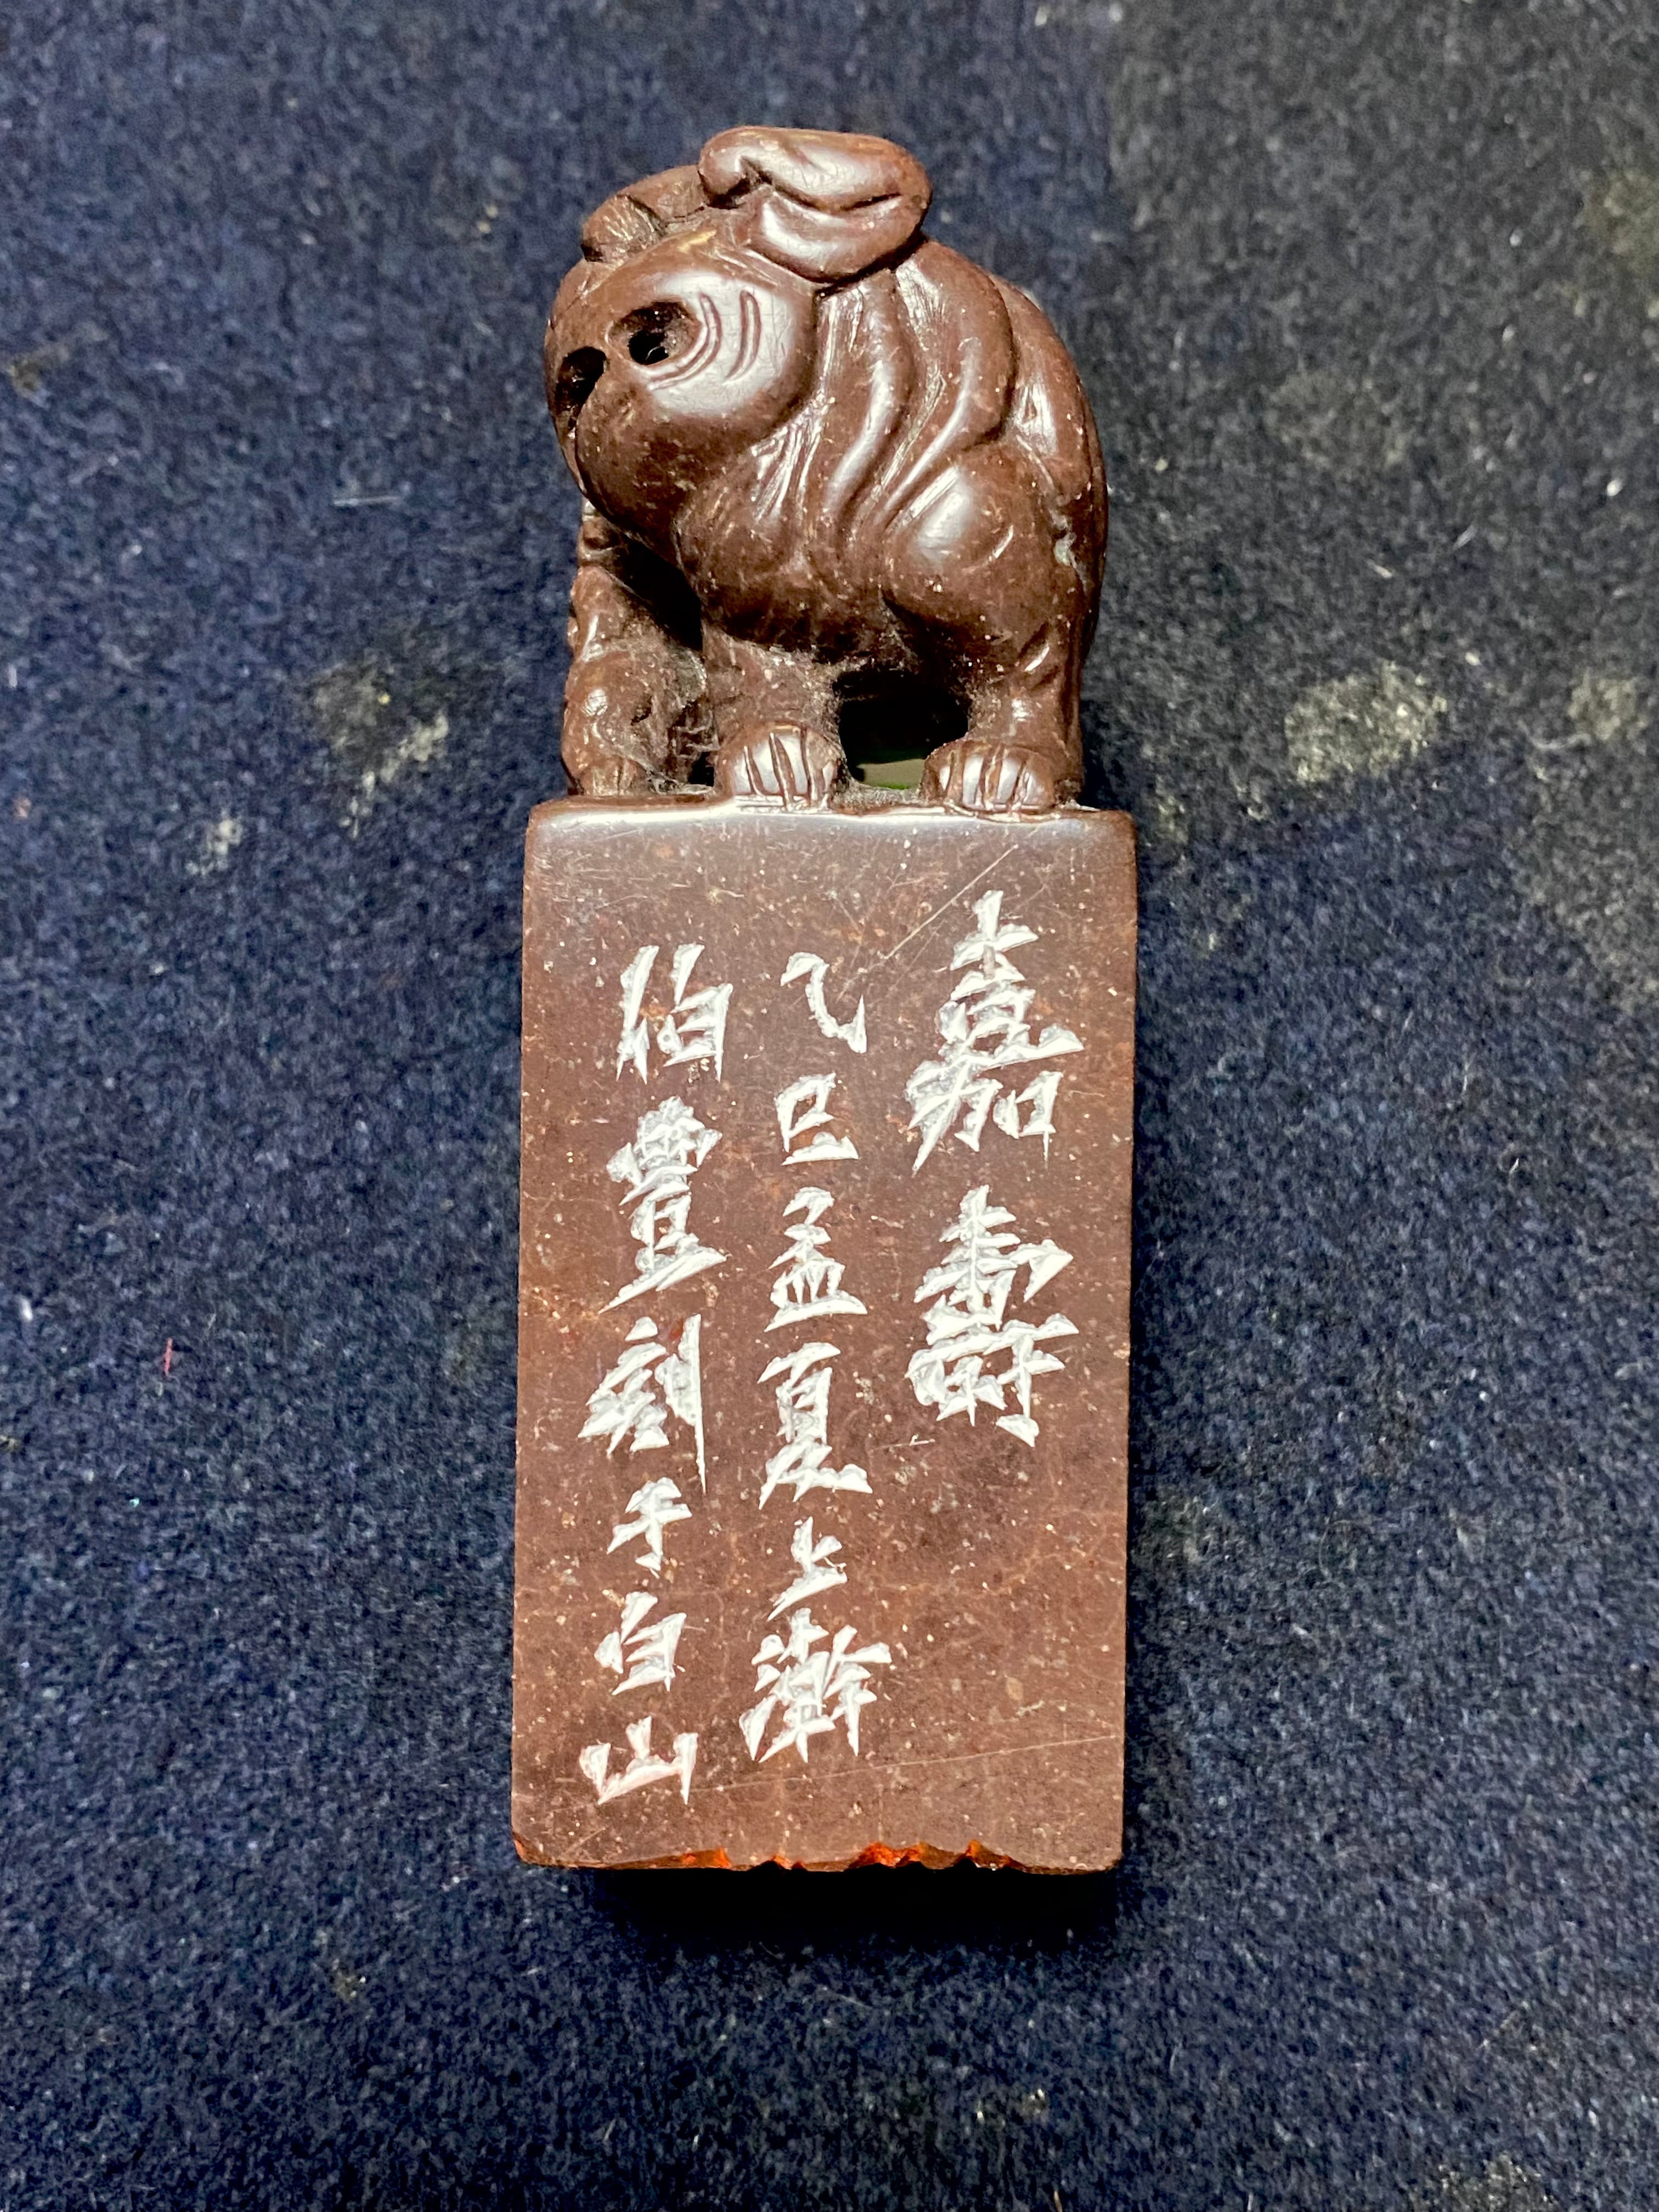 嘉壽
乙巳孟夏上澣
伯豐刻于白山